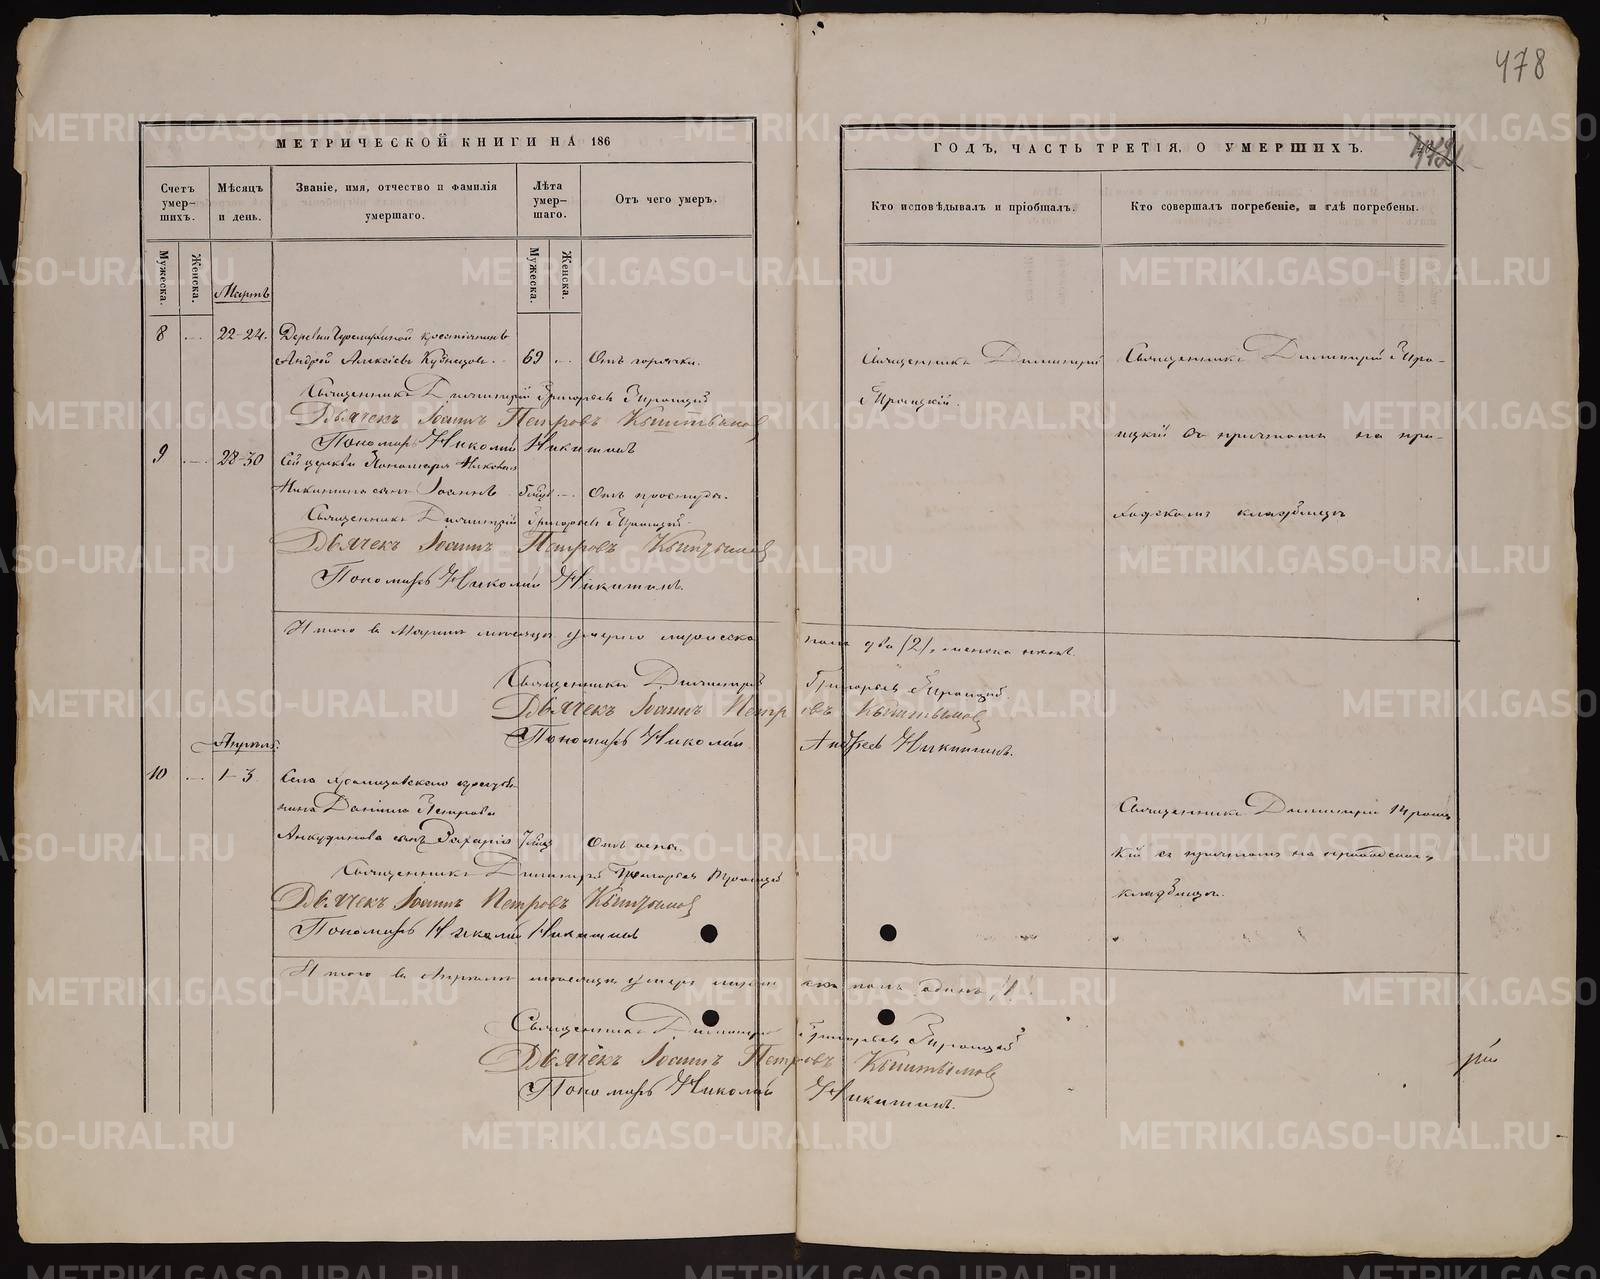 478
МЕТРИЧЕСКОЙ КНИГИ НА 186
ГОДЪ, ЧАСТЬ ТРЕТІЯ, О УМЕРШИХЪ.
Счетъ умер-шихъ.
Мѣсяцъ и день.
Званіе, имя, отчество и фамилія умершаго.
Лѣта умер-шаго.
Отъ чего умеръ.
Кто исповѣдывалъ и пріобщалъ.
Кто совершалъ погребеніе, и гдѣ погребены.
Мужеска.
Женска.
Мужеска.
Женска.
Мартъ
8 22-24. Деревни крестьянинъ
Андрей Алексѣевъ Кузнецовъ. 69 Отъ горячки.
Священникъ Димитрій
Троицкій.
Священникъ Димитрій Тро-
ицкій съ причтомъ на при-
ходскомъ кладбищѣ
Священникъ Димитрій Григорьевъ Троицкій
Дьячекъ Іоаннъ Петровъ Кыштымов
Пономарь Николай Никитинъ
9 28-30 Сей церкви Пономаря Николая
Никитина сынъ Іоаннъ Отъ простуды.
Священникъ Димитрій Григорьевъ Троицкій
Дьячекъ Іоаннъ Петровъ Кыштымов
Пономарь Николай Никитинъ.
Итого въ Мартѣ мѣсяцѣ умерло мужеска пола два (2), женска нѣтъ.
Священникъ Димитрій Григорьевъ Троицкій
Дьячекъ Іоаннъ Петровъ Кыштымов
Пономарь Николай Андреевъ Никитинъ.
Апрѣль
10 1-3 Села крестья-
нина Даніила Петрова
Анкудинова сынъ Захарія Отъ оспы.
Священникъ Димитрій Троиц
кій съ причтомъ на приходском
кладбищѣ.
Священникъ Димитрій Григорьевъ Троицкій
Дьячекъ Іоаннъ Петровъ Кыштымов
Пономарь Николай Никитинъ
Итого въ Апрѣлѣ мѣсяцѣ умеръ мужеска пола одинъ /1/.
Священникъ Димитрій Григорьевъ Троицкій
Дьячекъ Іоаннъ Петровъ Кыштымов
Пономарь Николай Никитинъ.
METRIKI.GASO-URAL.RU